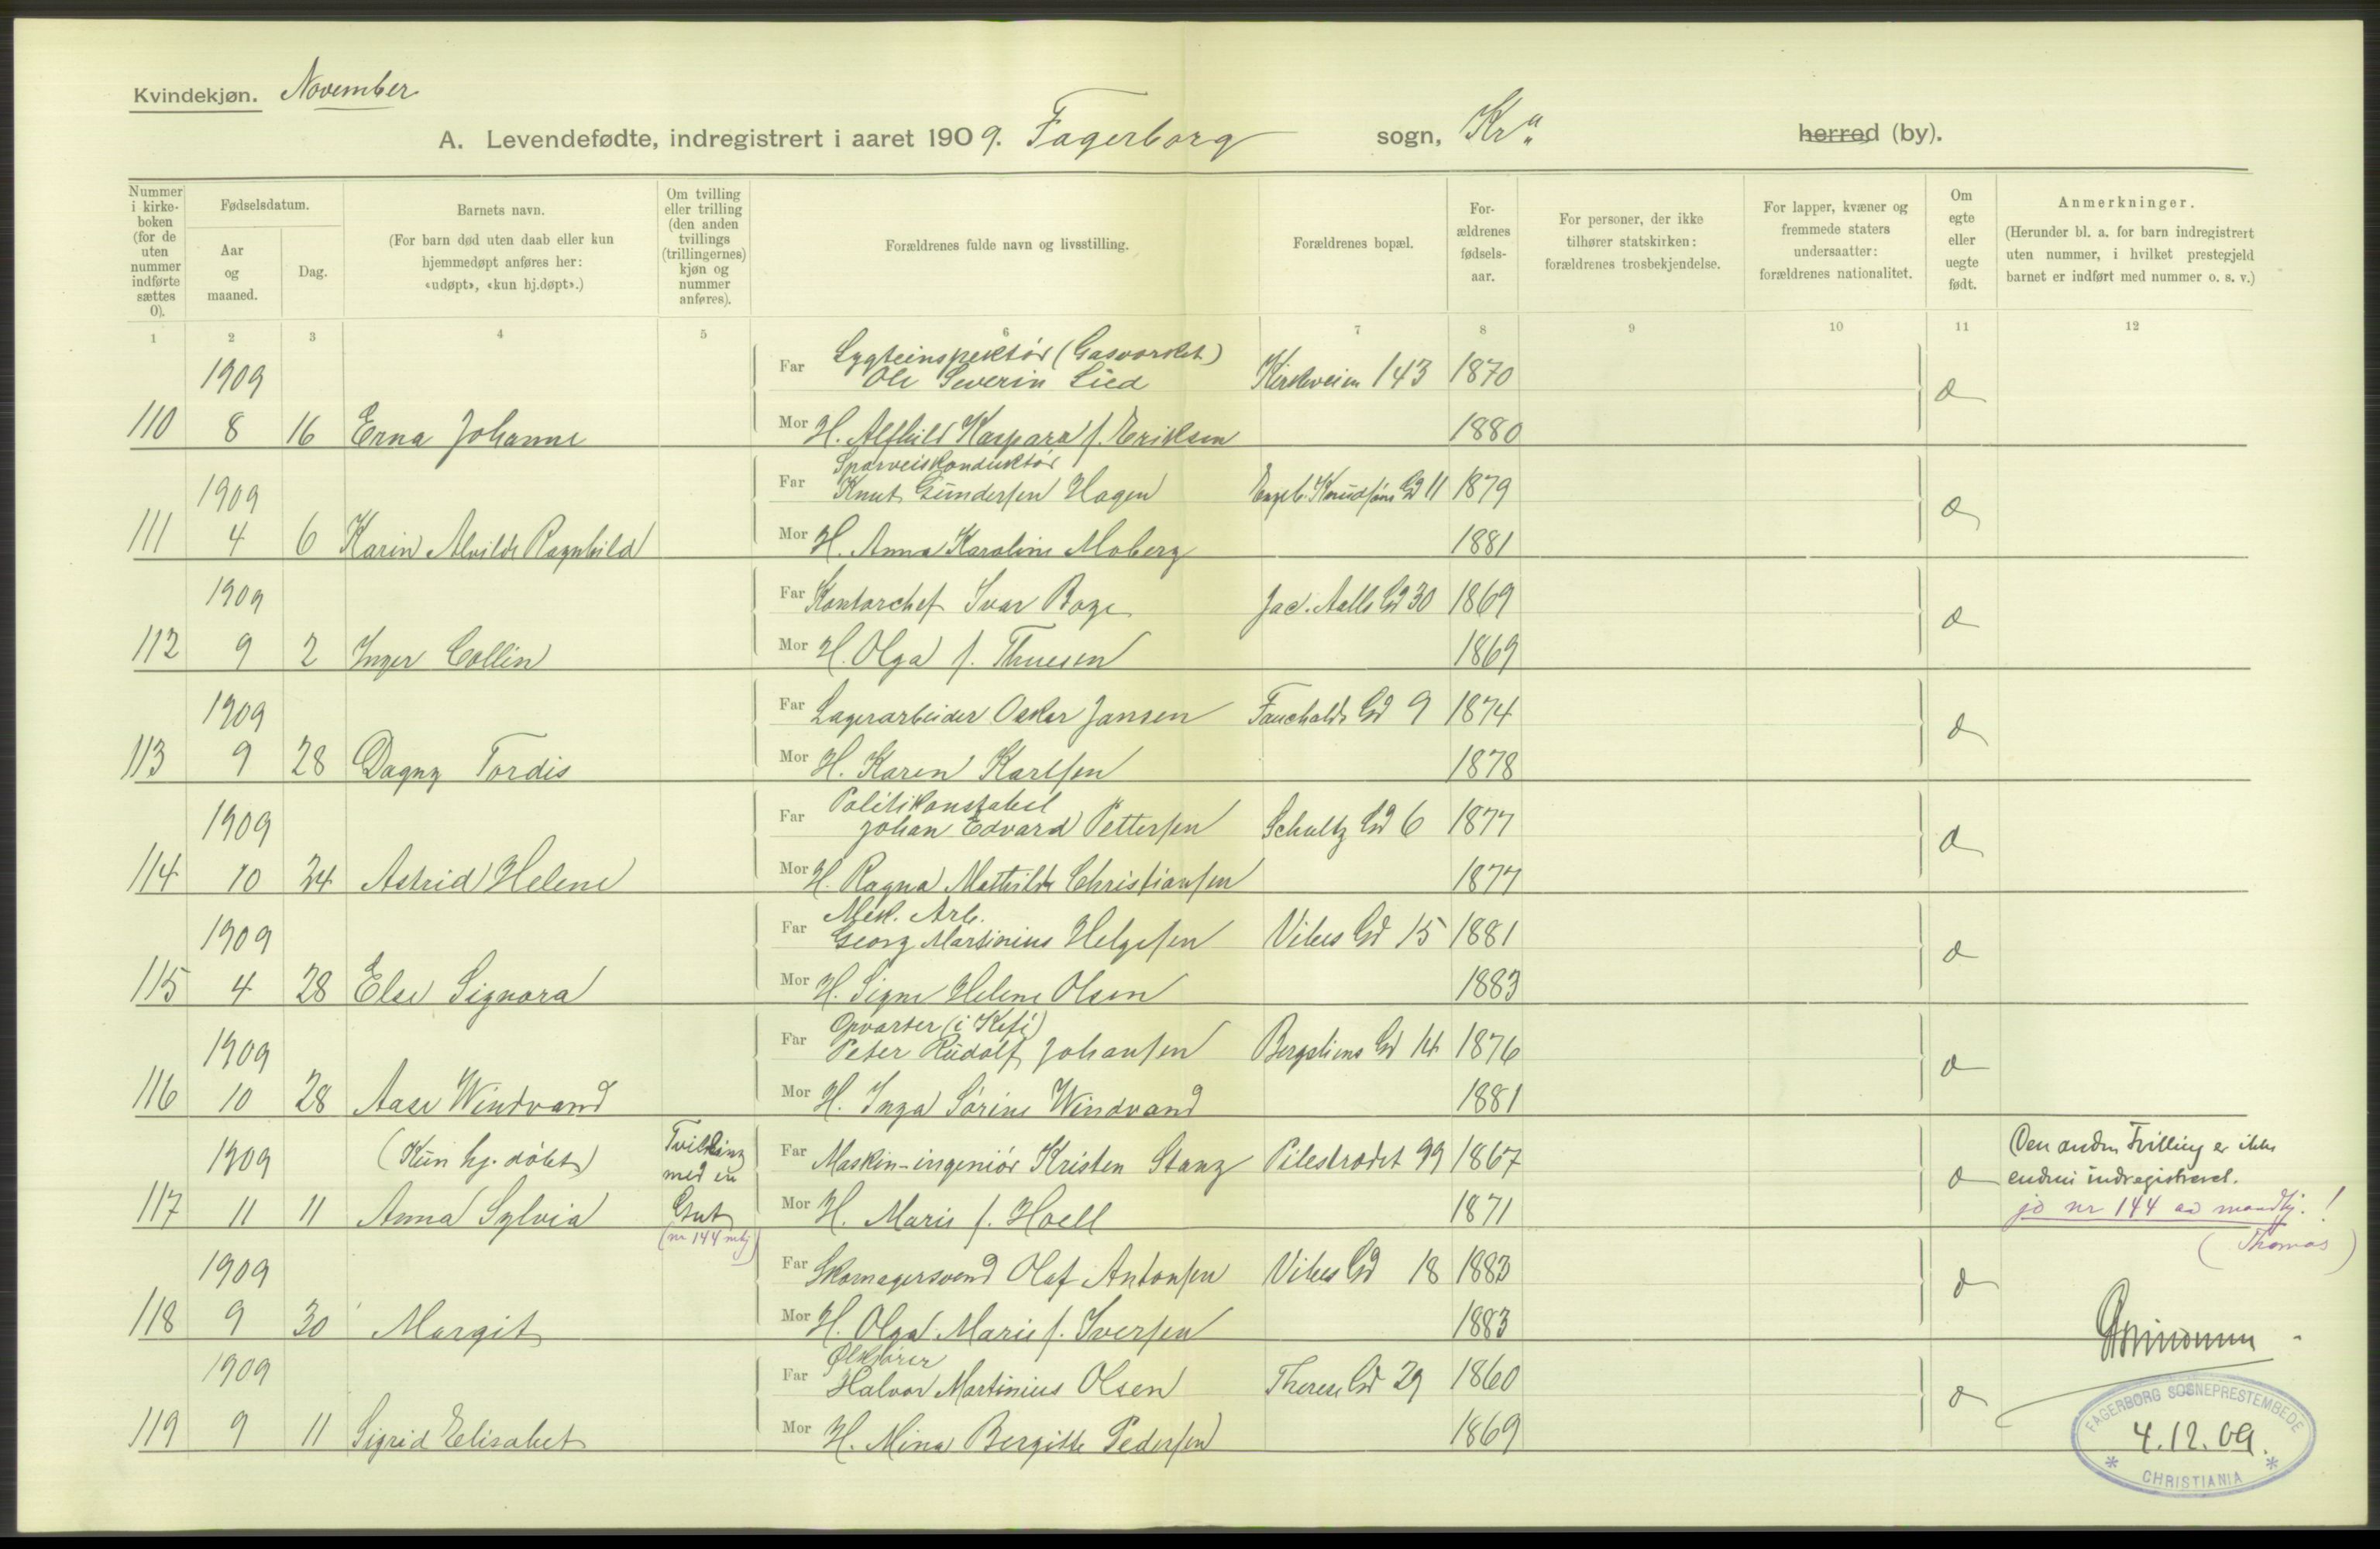 Kvindekjøn. November
A. Levendefødte, indregistrert i aaret 1909. Fagerborg sogn, Kr.a herred (by).
Nummer i kirkeboken (for de uten nummer indførte sættes 0).
Fødselsdatum.
Aar og maaned.
Dag.
Barnets navn.
(For barn død uten daab eller kun hjemmedøpt anføres her: «udøpt», «kun hj.døpt».)
Om tvilling eller trilling (den anden tvillings (trillingernes) kjøn og nummer anføres).
Forældrenes fulde navn og livsstilling.
Forældrenes bopæl.
Forældrenes fødselsaar.
For personer, der ikke tilhører statskirken: forældrenes trosbekjendelse.
For lapper, kvæner og fremmede staters undersaatter: forældrenes nationalitet.
Om egte eller uegte født.
Anmerkninger.
(Herunder bl. a. for barn indregistrert uten nummer, i hvilket prestegjeld barnet er indført med nummer o. s. v.)
1 2 3 4 5 6 7 8 9 10 11 12
1909 Far Lygteinspektør (Gasværket) Ole Severin Lied Kirkeveien 143 1870
110 8 16 Erna Johanne Mor H. Alfhild Kaspara f. Eriksen 1880
1909 Far Sporveiskonduktør Knut Gundersen Hagen Engeb. Knudsøns Gd 11 1879
111 4 6 Karin Alvilde Ragnhild Mor H. Anna Karoline Moberg 1881
1909 Far Kontorchef Ivar Boge Jac. Aalls Gd 30 1869
112 9 2 Inger Collin Mor H. Olga f. Thuesen 1869
1909 Far Lagerarbeider Oskar Jansen Fauchalds Gd 9 1874
113 9 28 Dagny Tordis Mor H. Karen Karlsen 1878
1909 Far Politikonstabel Johan Edvard Pettersen Schultz Gd 6 1877
114 10 24 Astrid Helene Mor H. Ragna Mathilde Christiansen 1877
1909 Far Mek. Arb. Georg Martinius Helgesen Vibes Gd 15 1881
115 4 28 Else Signora Mor H. Signe Helene Olsen 1883
1909 Far Opvarter (i Kafé) Peter Rudolf Johansen Bergsliens Gd 14 1876
116 10 28 Aase Windvand Mor H. Inga Sørine Windvand 1881
1909 (Kun hj. døbt) Tvilling med en Far Maskin-ingeniør Kristen Stang Pilestrædet 99 1867 Den anden Tvilling er ikke endnu indregistreret.
117 11 11 Anna Sylvia Gut (nr 144 mkj) Mor H. Marie f. Hoell 1871 jo nr 144 av mandkj. ! (Thomas)
1909 Far Skomagersvend Olaf Antonsen Vibes Gd 18 1883
118 9 30 Margit Mor H. Olga Marie f. Iversen 1883
1909 Far Ølkjører Halvor Martinius Olsen Therese Gd 29 1860
119 9 11 Sigrid Elisabet Mor H. Mina Bergitte Pedersen 1869
FAGERBORG SOGNEPRESTEMBEDE
4.12.09.
* CHRISTIANIA *